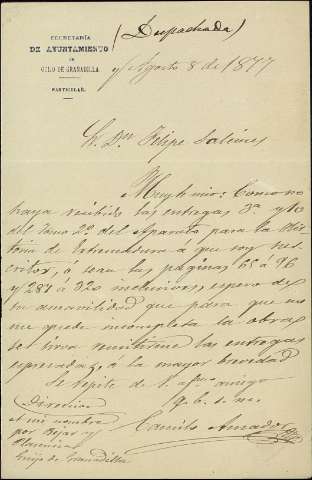 (Despachada)
SECRETARÍA
DE AYUNTAMIENTO
DE
GUIJO DE GRANADILLA
PARTICULAR.
y Agosto 8 de 1877
Sr. Dn. Felipe
Muy Sr. mio: Como no
haya recibido las entregas 3ª y 10
del tomo 2º del Aparato para la His
toria de Extremadura á que soy sus
critor, ó sean las páginas 65 á 96
y 289 á 320 inclusives, espero de
su amabilidad que para que no
me quede incompleta la obra
se sirva remitirme las entregas
espresadas, á la mayor brevedad
Se repite de V. afmo. amigo
q. b. s. m.
Camilo Amador
Direccion
á mi nombre
por Bejar y
Plasencia
Guijo de Granadilla